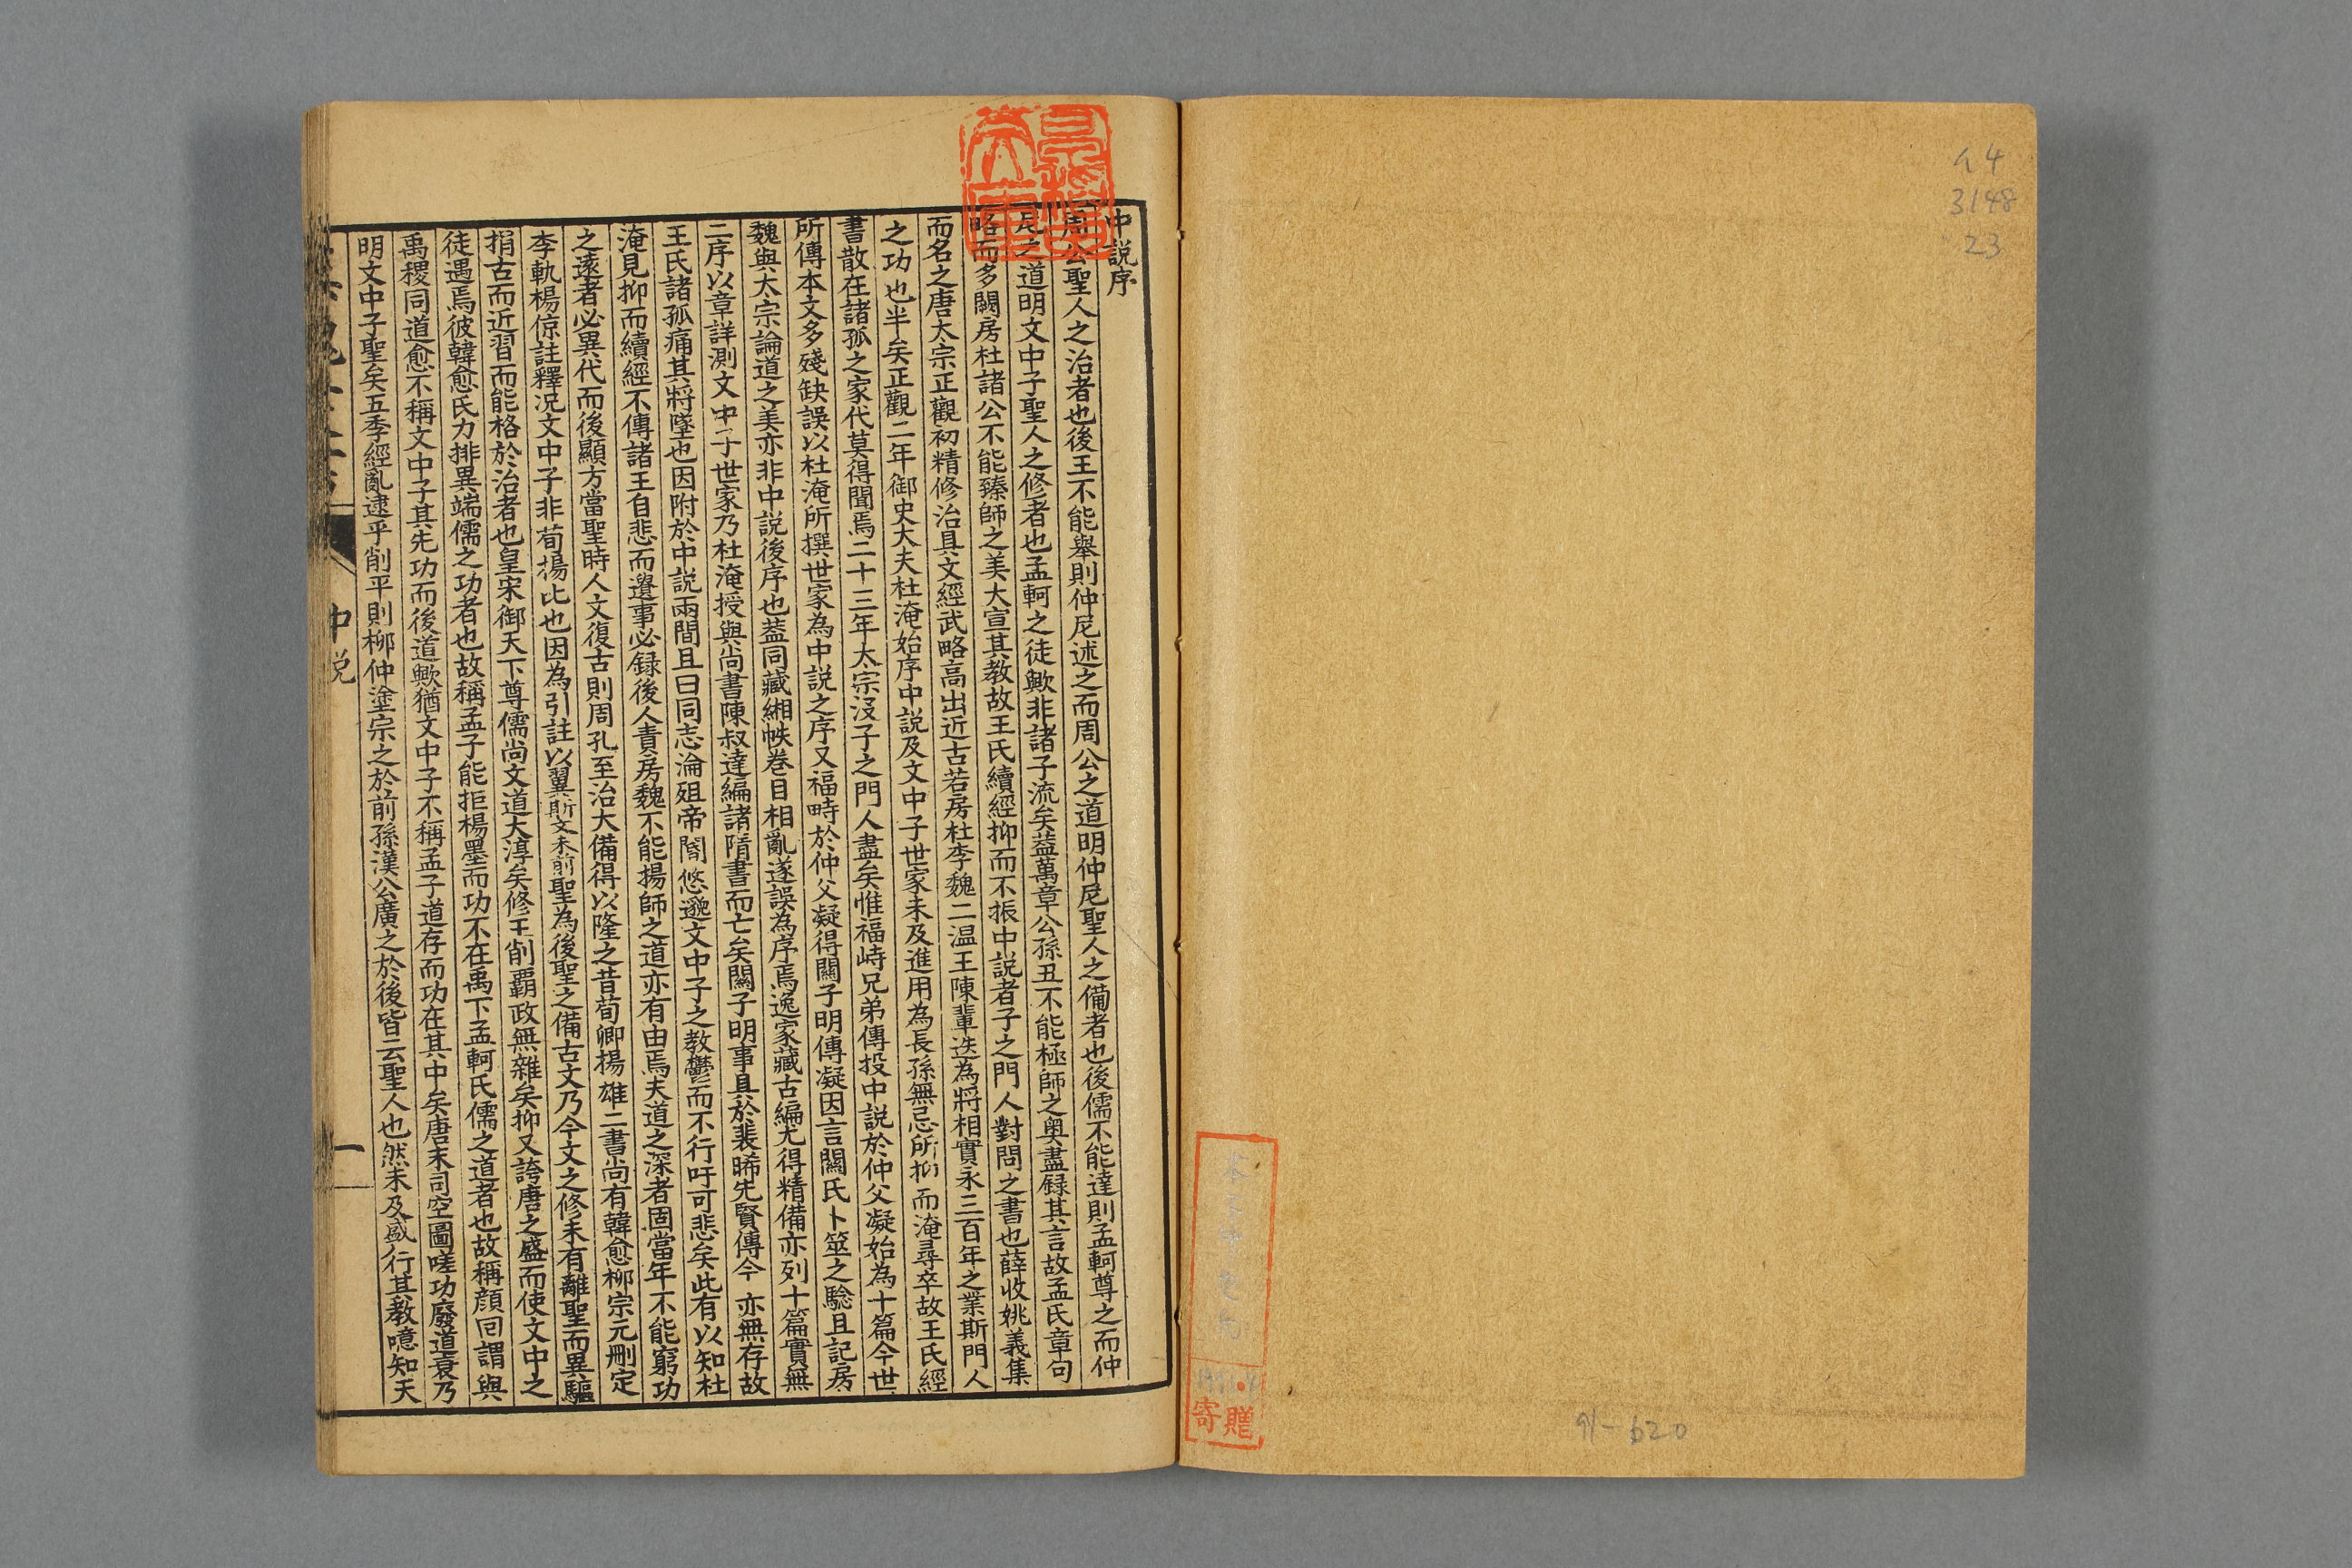 A4
3148
23
91-620
寄贈
中説序
周公聖人之治者也後王不能舉則仲尼述之而周公之道明仲尼聖人之備者也後儒不能達則孟軻尊之而仲
尼之道明文中子聖人之修者也孟軻之徒歟非諸子流矣蓋萬章公孫丑不能極師之奥盡録其言故孟氏章句
略而多闕房杜諸公不能臻師之美大宣其教故王氏續經抑而不振中説者子之門人對問之書也薛收姚義集
而名之唐太宗正觀初精修治具文經武略高出近古若房杜李魏二温王陳輩迭為將相實永三百年之業斯門人
之功也半矣正觀二年御史大夫杜淹始序中説及文中子世家未及進用為長孫無忌所抑而淹尋卒故王氏經
書散在諸孤之家代莫得聞焉二十三年太宗没子之門人盡矣惟福畤兄弟傳投中説於仲父凝始為十篇今世
所傳本文多殘缺誤以杜淹所撰世家為中説之序又福畤於仲父凝得關子明傳凝因言關氏卜筮之驗且記房
魏與太宗論道之美亦非中説後序也蓋同藏緗帙卷目相亂遂誤為序焉逸家藏古編尤得精備亦列十篇實無
二序以章詳測文中子世家乃杜淹授與尚書陳叔達編諸隋書而亡矣關子明事具於裴晞先賢傳今亦無存故
王氏諸孤痛其將墜也因附於中説兩間且曰同志淪殂帝閽悠邈文中子之教鬱而不行吁可悲矣此有以知杜
淹見抑而續經不傳諸王自悲而遺事必録後人責房魏不能揚師之道亦有由焉夫道之深者固當年不能窮功
之遠者必異代而後顯方當聖時人文復古則周孔至治大備得以隆之昔荀卿揚雄二書尚有韓愈柳宗元刪定
李軌楊倞註釋况文中子非荀揚比也因為引註以翼斯文未前聖為後聖之備古文乃今文之修未有離聖而異驅
捐古而近習而能格於治者也皇宋御天下尊儒尚文道大淳矣修王削覇政無雜矣抑又誇唐之盛而使文中之
徒遇焉彼韓愈氏力排異端儒之功者也故稱孟子能拒楊墨而功不在禹下孟軻氏儒之道者也故稱顔回謂與
禹稷同道愈不稱文中子其先功而後道歟猶文中子不稱孟子道存而功在其中矣唐末司空圖嗟功廢道衰乃
明文中子聖矣五季經亂逮乎削平則柳仲塗宗之於前孫漢公廣之於後皆云聖人也然未及盛行其教噫知天
中説
一